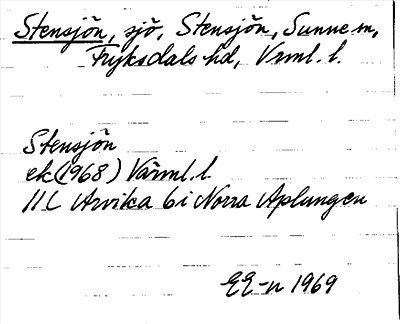 Stensjön, sjö, Stensjön, Sunne sn,
Fryksdals hd, Vrml. l.
Stensjön
ek (1968) Värml. l
11C Arvika 6 i Norra Aplungen
EE-n 1969